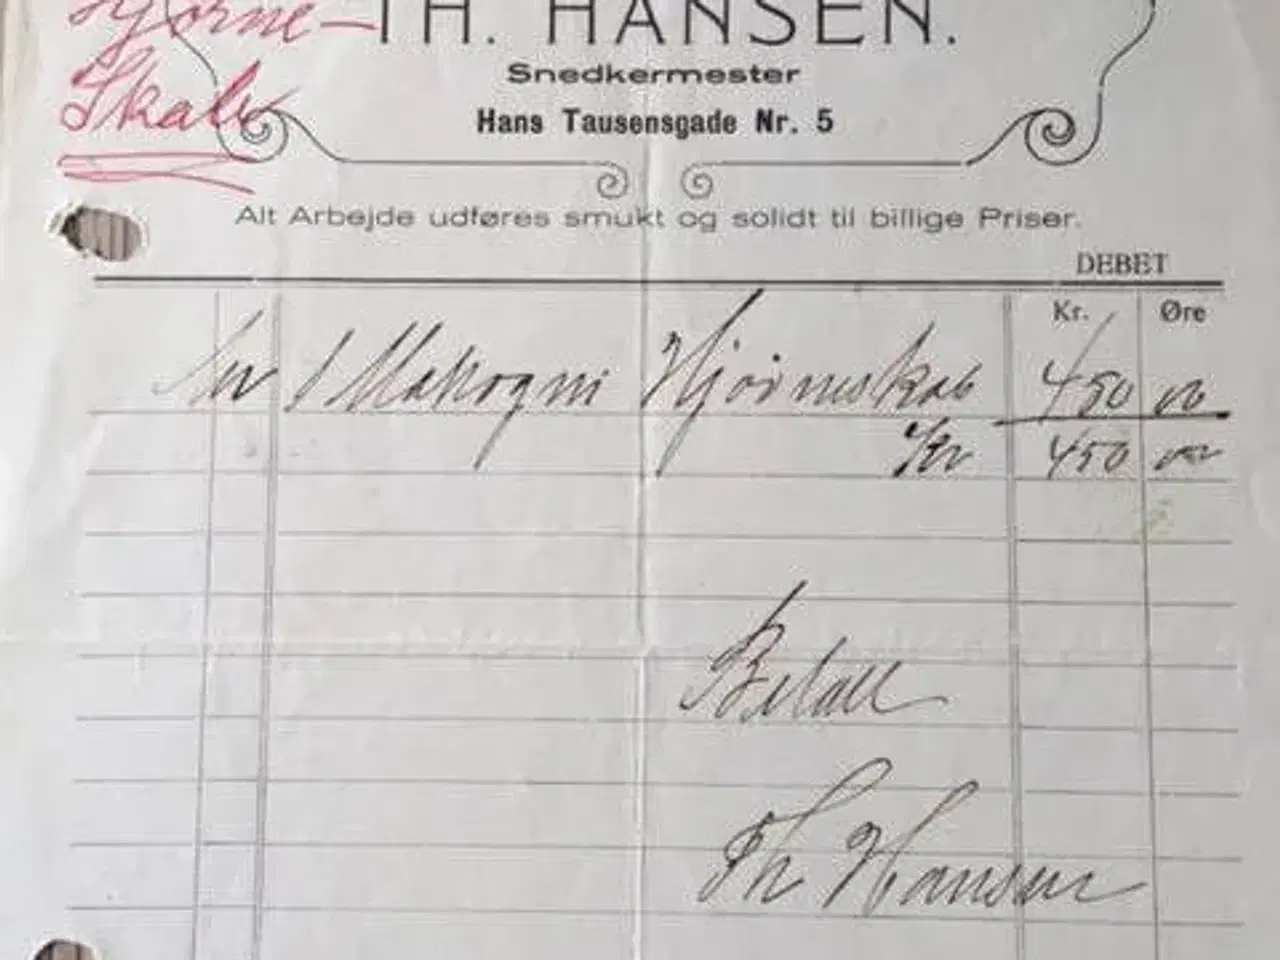 Hjørne-
Skab
TH. HANSEN.
Snedkermester
Hans Tausensgade Nr. 5
Alt Arbejde udføres smukt og solidt til billige Priser.
DEBET
Kr. Øre
1 Mahogni Hjørneskab 450 00
Kr 450 00
Betalt
Th Hansen